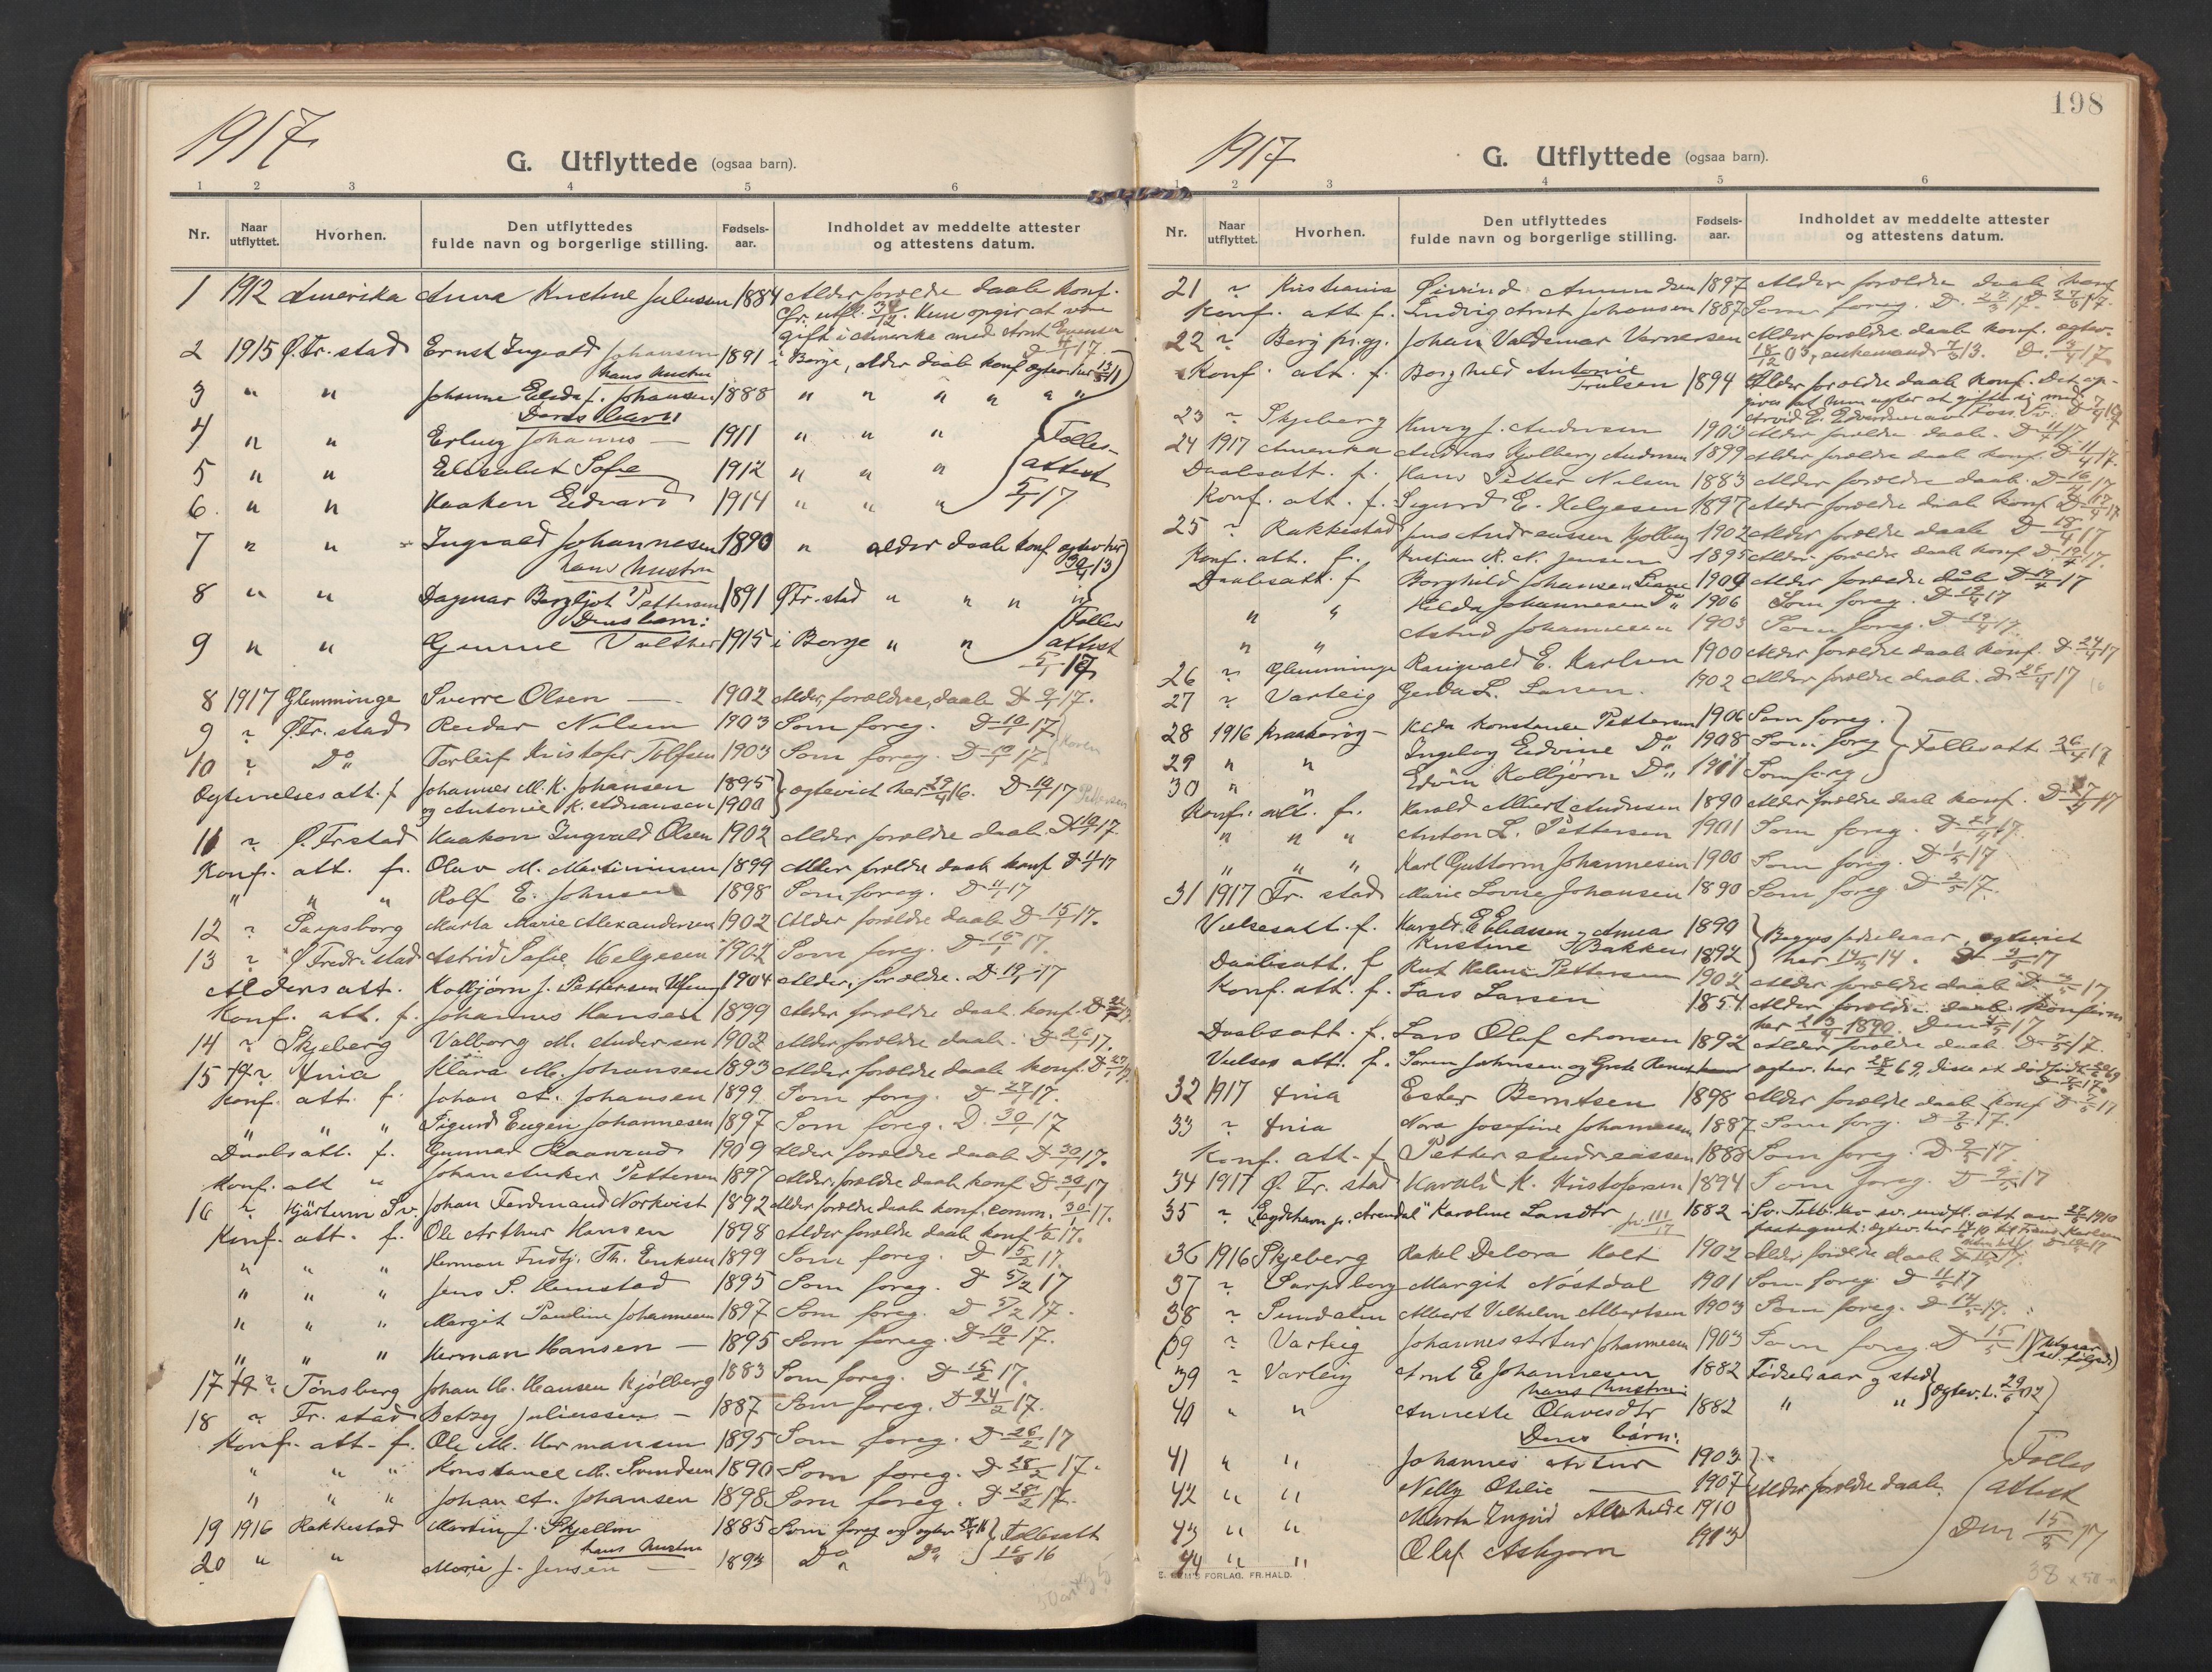 1917
G. Utflyttede (ogsaa barn).
1 2 3 4 5 6
Nr. Naar utflyttet. Hvorhen. Den utflyttedes fulde navn og borgerlige stilling. Fødsels-aar. Indholdet av meddelte attester og attestens datum.
1 1912 Amerika Anna Kristine Juliussen 1884 Alder forældre daab konf.
Hun opgir at være
gift i Amerika med Arnt Evensen
2 1915 Ø. Fr. stad Ernst Ingvald Johansen 1891 i Borge, alder daab konf
hans hustru
3 " " Johanne Elida f. Johansen 1888 " " " " "
Deres barn:
4 " " Erling Johannes — 1911 " " " Fælles-
5 " " Elisabet Sofie 1912 " " " attest
6 " " Haakon Edvard 1914 " " " 5/1 17
7 " " Ingvald Johannesen 1890 " alder daab konf.
hans hustru
8 " " Dagmar Bergljot Pettersen 1891 Ø Fr. stad " " " "
Deres barn: Fælles
9 " " Gunnel Valther 1915 i Borge " " attest
5/1 17
8 1917 Glemminge Sverre Olsen — 1902 Alder, forældre, daab D 9/1 17.
9 " Ø. Fr. stad Reidar Nilsen 1903 Som foreg. D 10/1 17
10 " Do Torleif Kristofer Tolfsen 1903 Som foreg. D 10/1 17
Egtevielsesatt. f. Johannes M. K. Johansen 1895
og Antonie K. Adriansen 1900 egteviet her 29/4 16. D 10/1 17
11 " Ø. Fr stad Haakon Ingvald Olsen 1902 Alder forældre daab. D 10/1 17.
Konf. att. fr. Olav M. Martiniussen 1899 Alder forældre daab konf D 11/1 17
" " " Rolf E. Johnsen 1898 Som foreg. D 11/1 17
12 " Sarpsborg Marta Marie Alexandersen 1902 Alder forældre daab D 15/1 17.
13 " Ø Fredr. stad Astrid Sofie Helgesen 1902 Som foreg. D 15/1 17.
Alders att. Kolbjørn J. Pettersen 1904 Alder, forældre. D 19/1 17
Konf. att. f. Johannes Hansen 1899 Alder forældre daab. konf.
14 " Skjeberg Valborg M. Andersen 1902 Alder forældre daab. D 26/1 17.
15 " Xnia Klara M. Johansen 1893 Alder forældre daab konf. D 27/1 17.
Konf. att. f. Johan A. Johansen 1899 Som foreg. D 27/1 17.
" " " Sigurd Eugen Johannesen 1897 Som foreg. D. 30/1 17
Daabsatt. f. Gunnar Raanrud 1909 Alder forældre daab D 30/1 17.
Konf. att " Johan Anker Pettersen 1897 Alder, forældre daab konf D 30/1 17
16 " Hjärtum Sv. Johan Ferdinand Norkvist 1892 Alder forældre daab konf. comm. 30/1 17.
Konf. att. f. Ole Arthur Hansen 1898 Alder forældre daab konf.
" " " Herman Fridtj. Th. Eriksen 1899 Som foreg. D 5/2 17.
" " " Jens S. Hemstad 1895 Som foreg. D 5/2 17
" " " Margit Pauline Johannesen 1897 Som foreg. D 5/2 17.
" " " Herman Hansen — 1895 Som foreg. D 10/2 17.
17 " Tønsberg Johan M. Hansen Kjölberg 1883 Som foreg. D 15/2 17.
18 " Fr. stad Betzy Juliussen — 1887 Som foreg. D 24/2 17.
Konf. att. f. Ole M. Hermansen 1895 Som foreg. D 26/2 17
" " " Konstance M. Svendsen 1890 Som foreg. D 28/2 17.
" " " Johan A. Johansen 1898 Som foreg. D 28/2 17.
19 1916 Rakkestad Martin J. Skjellin 1885 Som foreg og egtev Fællesatt
hans hustru
20 " " Marie J. Jensen — 1893 Do Do 16
198
1917
G. Utflyttede (ogsaa barn).
1 2 3 4 5 6
Nr. Naar utflyttet. Hvorhen. Den utflyttedes fulde navn og borgerlige stilling. Fødsels-aar. Indholdet av meddelte attester og attestens datum.
21 " Kristiania Øivind Amundsen 1897 Alder forældre daab konf
Konf. att. f. Ludvig Arnt Johansen 1887 Som foreg. D. 27/3 17.
22 " Berg pr.gj. Johan Valdemar Vernersen Alder forældre daab konf. egtev.
18/12 03, enkemand 7/3 13. D. 3/4 17
Konf. att. f. Borghild Antonie
Trulsen 1894 Alder forældre daab konf. Det op-
gives at hun agter at gifte si med
23 " Skjeberg Henry J. Andersen 1903 Alder forældre daab. D 11/4 17
24 1917 Amerika Andreas Kjølberg Andersen 1899 Alder forældre daab konf. D 11/4 17.
Daabsatt. f. Hans Petter Nilsen 1883 Alder forældre daab. D 16/4 17
Konf. att. f. Sigurd E. Helgesen 1897 Alder forældre daab konf D 17/4 17
25 " Rakkestad Jens Andreassen Kjølberg 1902 Alder forældre daab D 18/4 17
Konf. att. fr. Kristian R. N. Jensen 1895 Alder forældre daab konf D 19/4 17.
Daabsatt. f Borghild Johansen Liane 1909 Alder forældre daab D 19/4 17
" " Hilda Johannesen Do 1906 Som foreg. D 19/4 17
" " Astrid Johannesen 1903 Som foreg. D 19/4 17.
26 " Glemminge Ragnvald E. Karlsen 1900 Alder forældre daab konf. D 24/4 17
27 " Varteig Gerda L. Larsen. 1902 Alder forældre daab. D 17
28 1916 Kraakerøy — Hilda Konstanse Pettersen 1906 Som foreg.
29 " " Ingeborg Edvine Do 1908 Som foreg Fællesatt. 26/4 17
30 " " Edvin Kolbjørn Do 1911 Som foreg
Konf. att. fr. Harald Albert Andersen 1890 Alder forældre daab konf. D 27/4 17
" " " Anton L. Pettersen 1901 Som foreg. D 27/4 17.
" " " Karl Guttorm Johannesen 1900 Som foreg. D 1/5 17
31 1917 Fr. stad Marie Lovise Johansen 1890 Som foreg D 2/5 17.
Vielsesatt. f. Harald E Eliassen og Anna 1890
Kristine Bakken 1892 Begges fødselsaar, egteviet her 14. D 2/5 17
Daabsatt. f Rut Helene Pettersen 1902 Alder forældre daab D 17
Konf. att. f. Lars Larsen 1854 Alder forældre daab konfirm
her 1890. Den 17
Daabsatt. f. Lars Olaf Aronsen 1892 Alder forældre daab D 17.
Vielses att. f. Søren Johnsen og Grete egtev. her 28/2 69,
32 1917 Xnia Ester Berntsen 1898 Alder forældre daab konf D 7/5 17
33 " Xnia Nora Josefine Johannesen 1887 Som foreg. D 7/5 17.
Konf. att. f Petter Andreassen 1888 Som foreg. D 9/5 17.
34 1917 Ø. Fr. stad Harald K. Kristofersen 1894 Som foreg. D 9/5 17
35 " "Egdehavn p. Arendal" Karoline Larsdtr 1882
36 1916 Skjeberg Rakel Debora Holt 1902 Alder forældre daab D 17.
37 " Sarpsborg Margit Nöstdal 1901 Som foreg. D 11/5 17
38 " Sundalen Albert Vilhelm Albertsen 1903 Som foreg. D 14/5 17.
39 " Varteig Johannes Artur Johannesen 1903 Som foreg. D 15/5 17
39 " Varteig Arnt E Johannesen 1882 Fødselsaar og sted
hans hustru:
40 " " Annette Olavesdtr 1882 " " egtev. 29/6 02
Deres børn:
41 " " Johannes Artur 1903 Fælles
42 " " Nelly Otilie — 1907 Alder forældre daab. attest
43 " " Marta Ingrid Alvhilde 1910 Den 15/5 17
44 " " Olaf Asbjørn 1913
E. SEM'S FORLAG. FR.HALD.